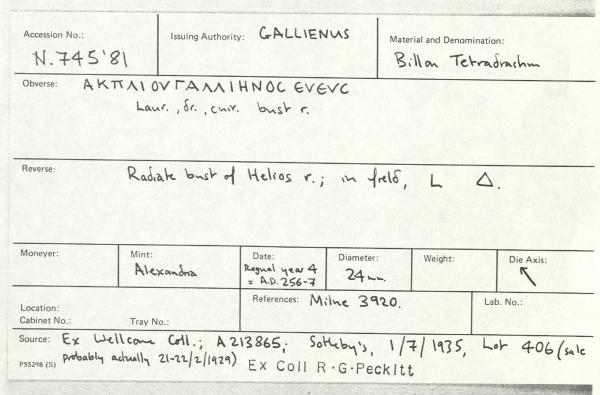 Accession No.: N.745'81
Issuing Authority: GALLIENUS
Material and Denomination: Billon Tetradrachm
Obverse: ΑΚΠΛΙΟΥΓΑΛΛΙΗΝΟCΕΥΕΥC
Laur., dr., cuir. bust r.
Reverse: Radiate bust of Helios r.; in field, L Δ.
Moneyer:
Mint: Alexandria
Date: Regnal year 4
= A.D. 256-7
Diameter: 24mm.
Weight:
Die Axis: ↖
Location:
Cabinet No.: Tray No.:
References: Milne 3920.
Lab. No.:
Source: Ex Wellcome Coll.; A213865; Sotheby's, 1/7/1935, Lot 406 (sale
probably actually 21-22/2/1929) Ex Coll R.G.Peckitt
P55298 (S)